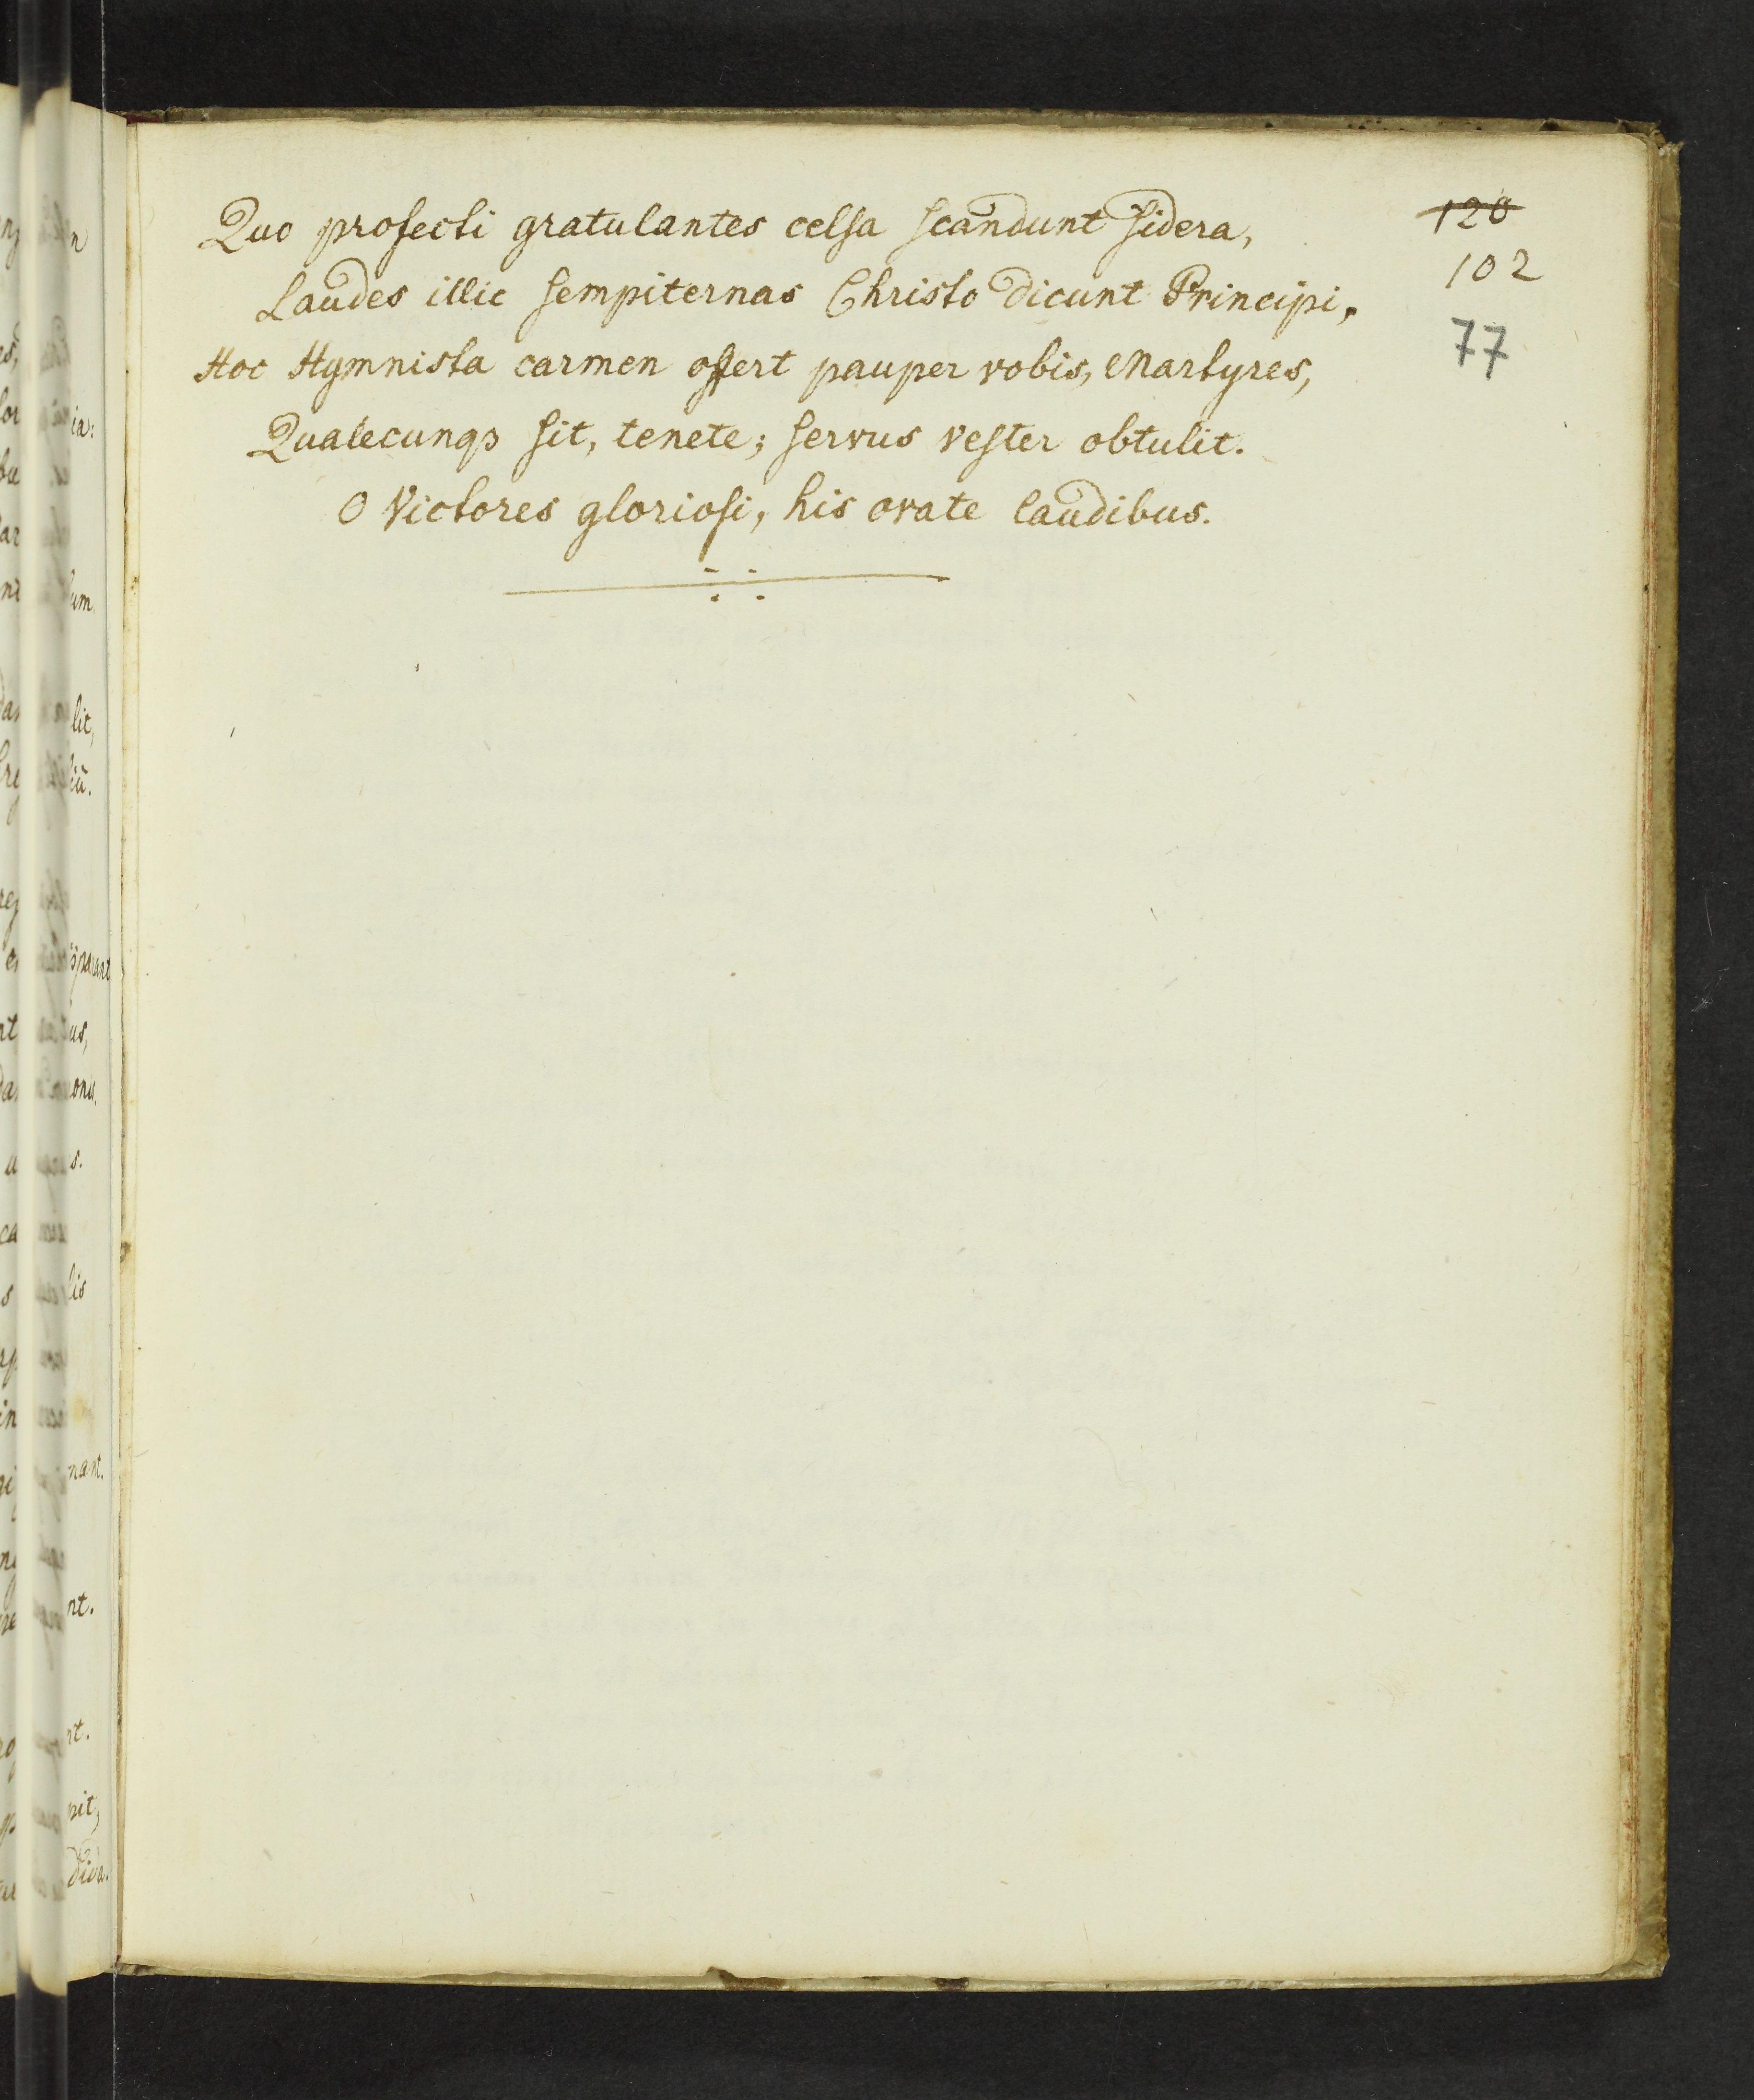 Quo profecti gratulantes celsa scandunt sidera,
Laudes illic sempiternas Christo dicunt Principi,
Hoc Hymnista carmen offert pauper vobis, Martyres,
Qualecunqꝫ sit, tenete; servus vester obtulit.
O Victores gloriosi, his ovate laudibus.
120
102
77